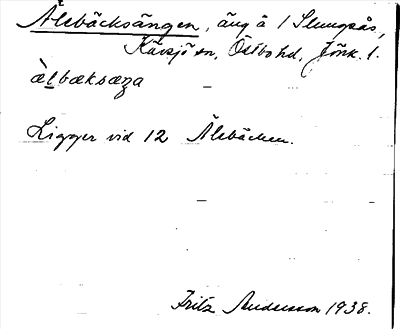 Älebäcksängen, äng å 1 Slungsås,
Kävsjö sn, Östbo hd, Jönk. l.
æ̀lbæksæŋa
Ligger vid 12 Älebäcken.
Fritz Andersson 1938.